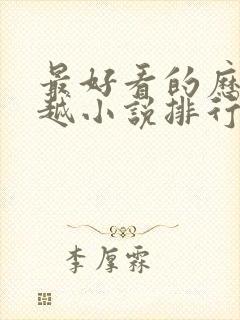 最好看的历
越小说排行
李厚霖